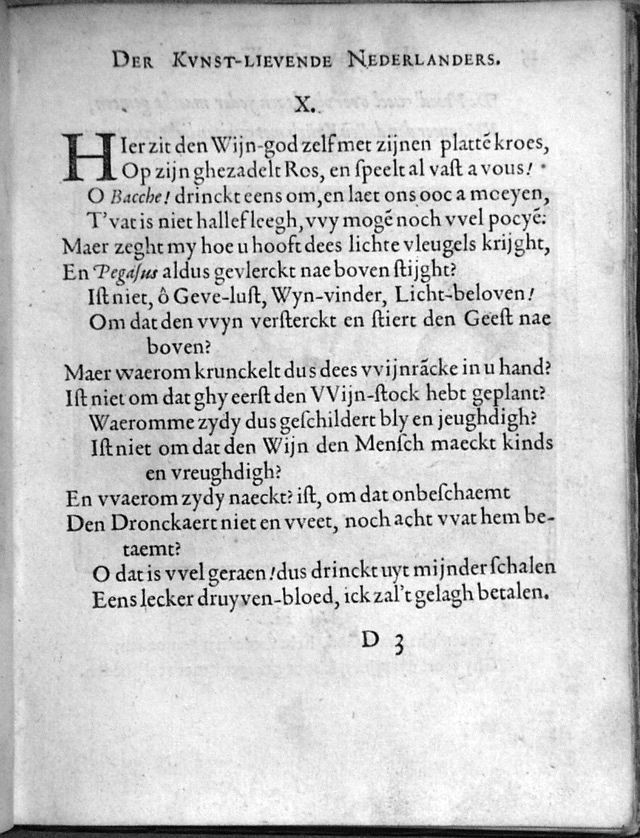 DER KVNST-LIEVENDE NEDERLANDERS.
X.
HIer zit den Wijn-god zelf met zijnen plattē kroes,
Op zijn ghezadelt Ros, en ſpeelt al vaſt a vous!
O Bacche! drinckt eens om, en laet ons ooc a moeyen,
T'vat is niet half leegh, vvy mogē noch vvel poeyē:
Maer zeght my hoe u hooft dees lichte vleugels krijght,
En Pegaſus aldus gevlerckt nae boven ſtijght?
Iſt niet, ô Geve-luſt, Wyn-vinder, Licht-beloven!
Om dat den vvyn verſterckt en ſtiert den Geeſt nae
boven?
Maer waerom krunckelt dus dees vvijnrācke in u hand?
Iſt niet om dat ghy eerſt den VVijn-ſtock hebt geplant?
Waeromme zydy dus geſchildert bly en jeughdigh?
Iſt niet om dat den Wijn den Menſch maeckt kinds
en vreughdigh?
En vvaerom zydy naeckt? iſt, om dat onbeſchaemt
Den Dronckaert niet en vveet, noch acht vvat hem be-
taemt?
O dat is vvel geraen! dus drinckt uyt mijnder ſchalen
Eens lecker druyven-bloed, ick zal't gelagh betalen.
D 3